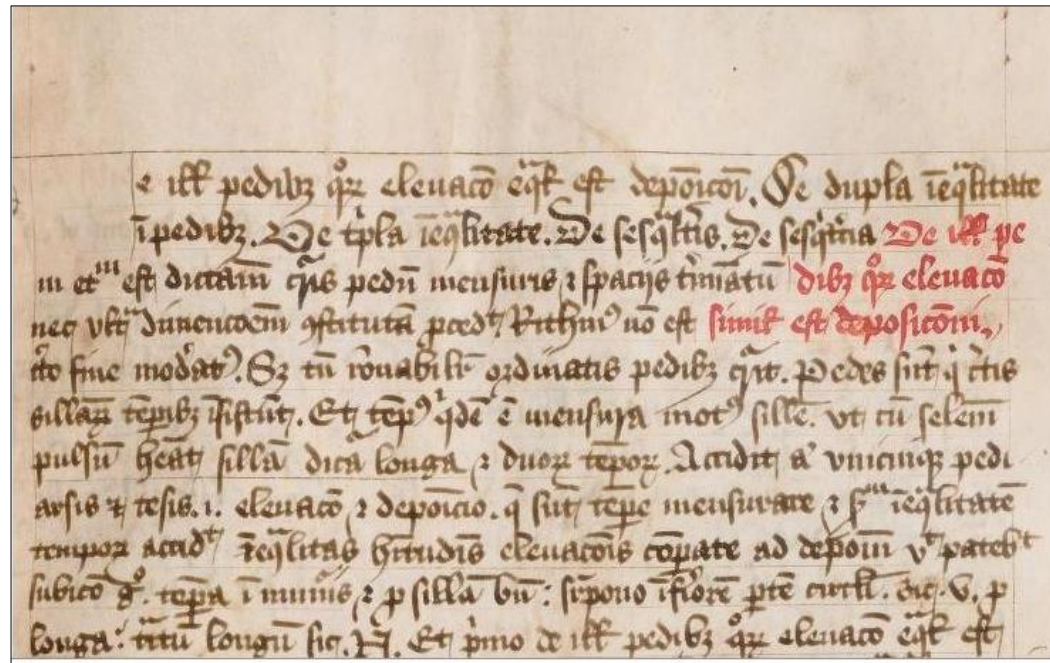 e ill pedibꝫ qͦꝝ eleuacō eq̄l est depōicōi. De dupla īeq̄litate
ī pedibꝫ. De tͥpla īeq̄litate. De sesq̄lt̄is. De sesqͥt̄cia De ill pe
m etᵐ est dictam̄ c̄tis pedū mensuris ⁊ spacijs t̄mīatū dibꝫ qͦꝝ eleuacō
nec vltͣ dimencoēm ꝯstitutā ꝓced̄t. Rithmꝰ nō est simil est deposicōni.
c̄to fine modͤatꝰ. Sꝫ tn̄ rōnabilit̄ ordinatis pedibꝫ c̄rit. Pedes sūt qͥ c̄tis
sillaꝝ tēpibꝫ īsistūt. Et tēpꝰ qͥdē ē mensura motꝰ sille. vt cū
pulsū heāt sillā dicā longa ⁊ duoꝝ tēpoꝝ. Accidit aͫ vnicuiqꝫ pedi
arsis ⁊ tesis .i. eleuacō ⁊ depōicio. q̄ sūt tēpe mensurate ⁊ fᵐ īeq̄litatē
tempoꝝ accid̄t īeq̄litas eleuacōis cōpate ad depōm vͭ patebᵗ
subicō gͦ. tēpa ī ⁊ ꝑ sillā bū : īfiorē ꝑtē sic. V. ꝑ
longa : longū sic. Et pͥmo de ill pedibꝫ qͦꝝ eleuacō eq̄l est